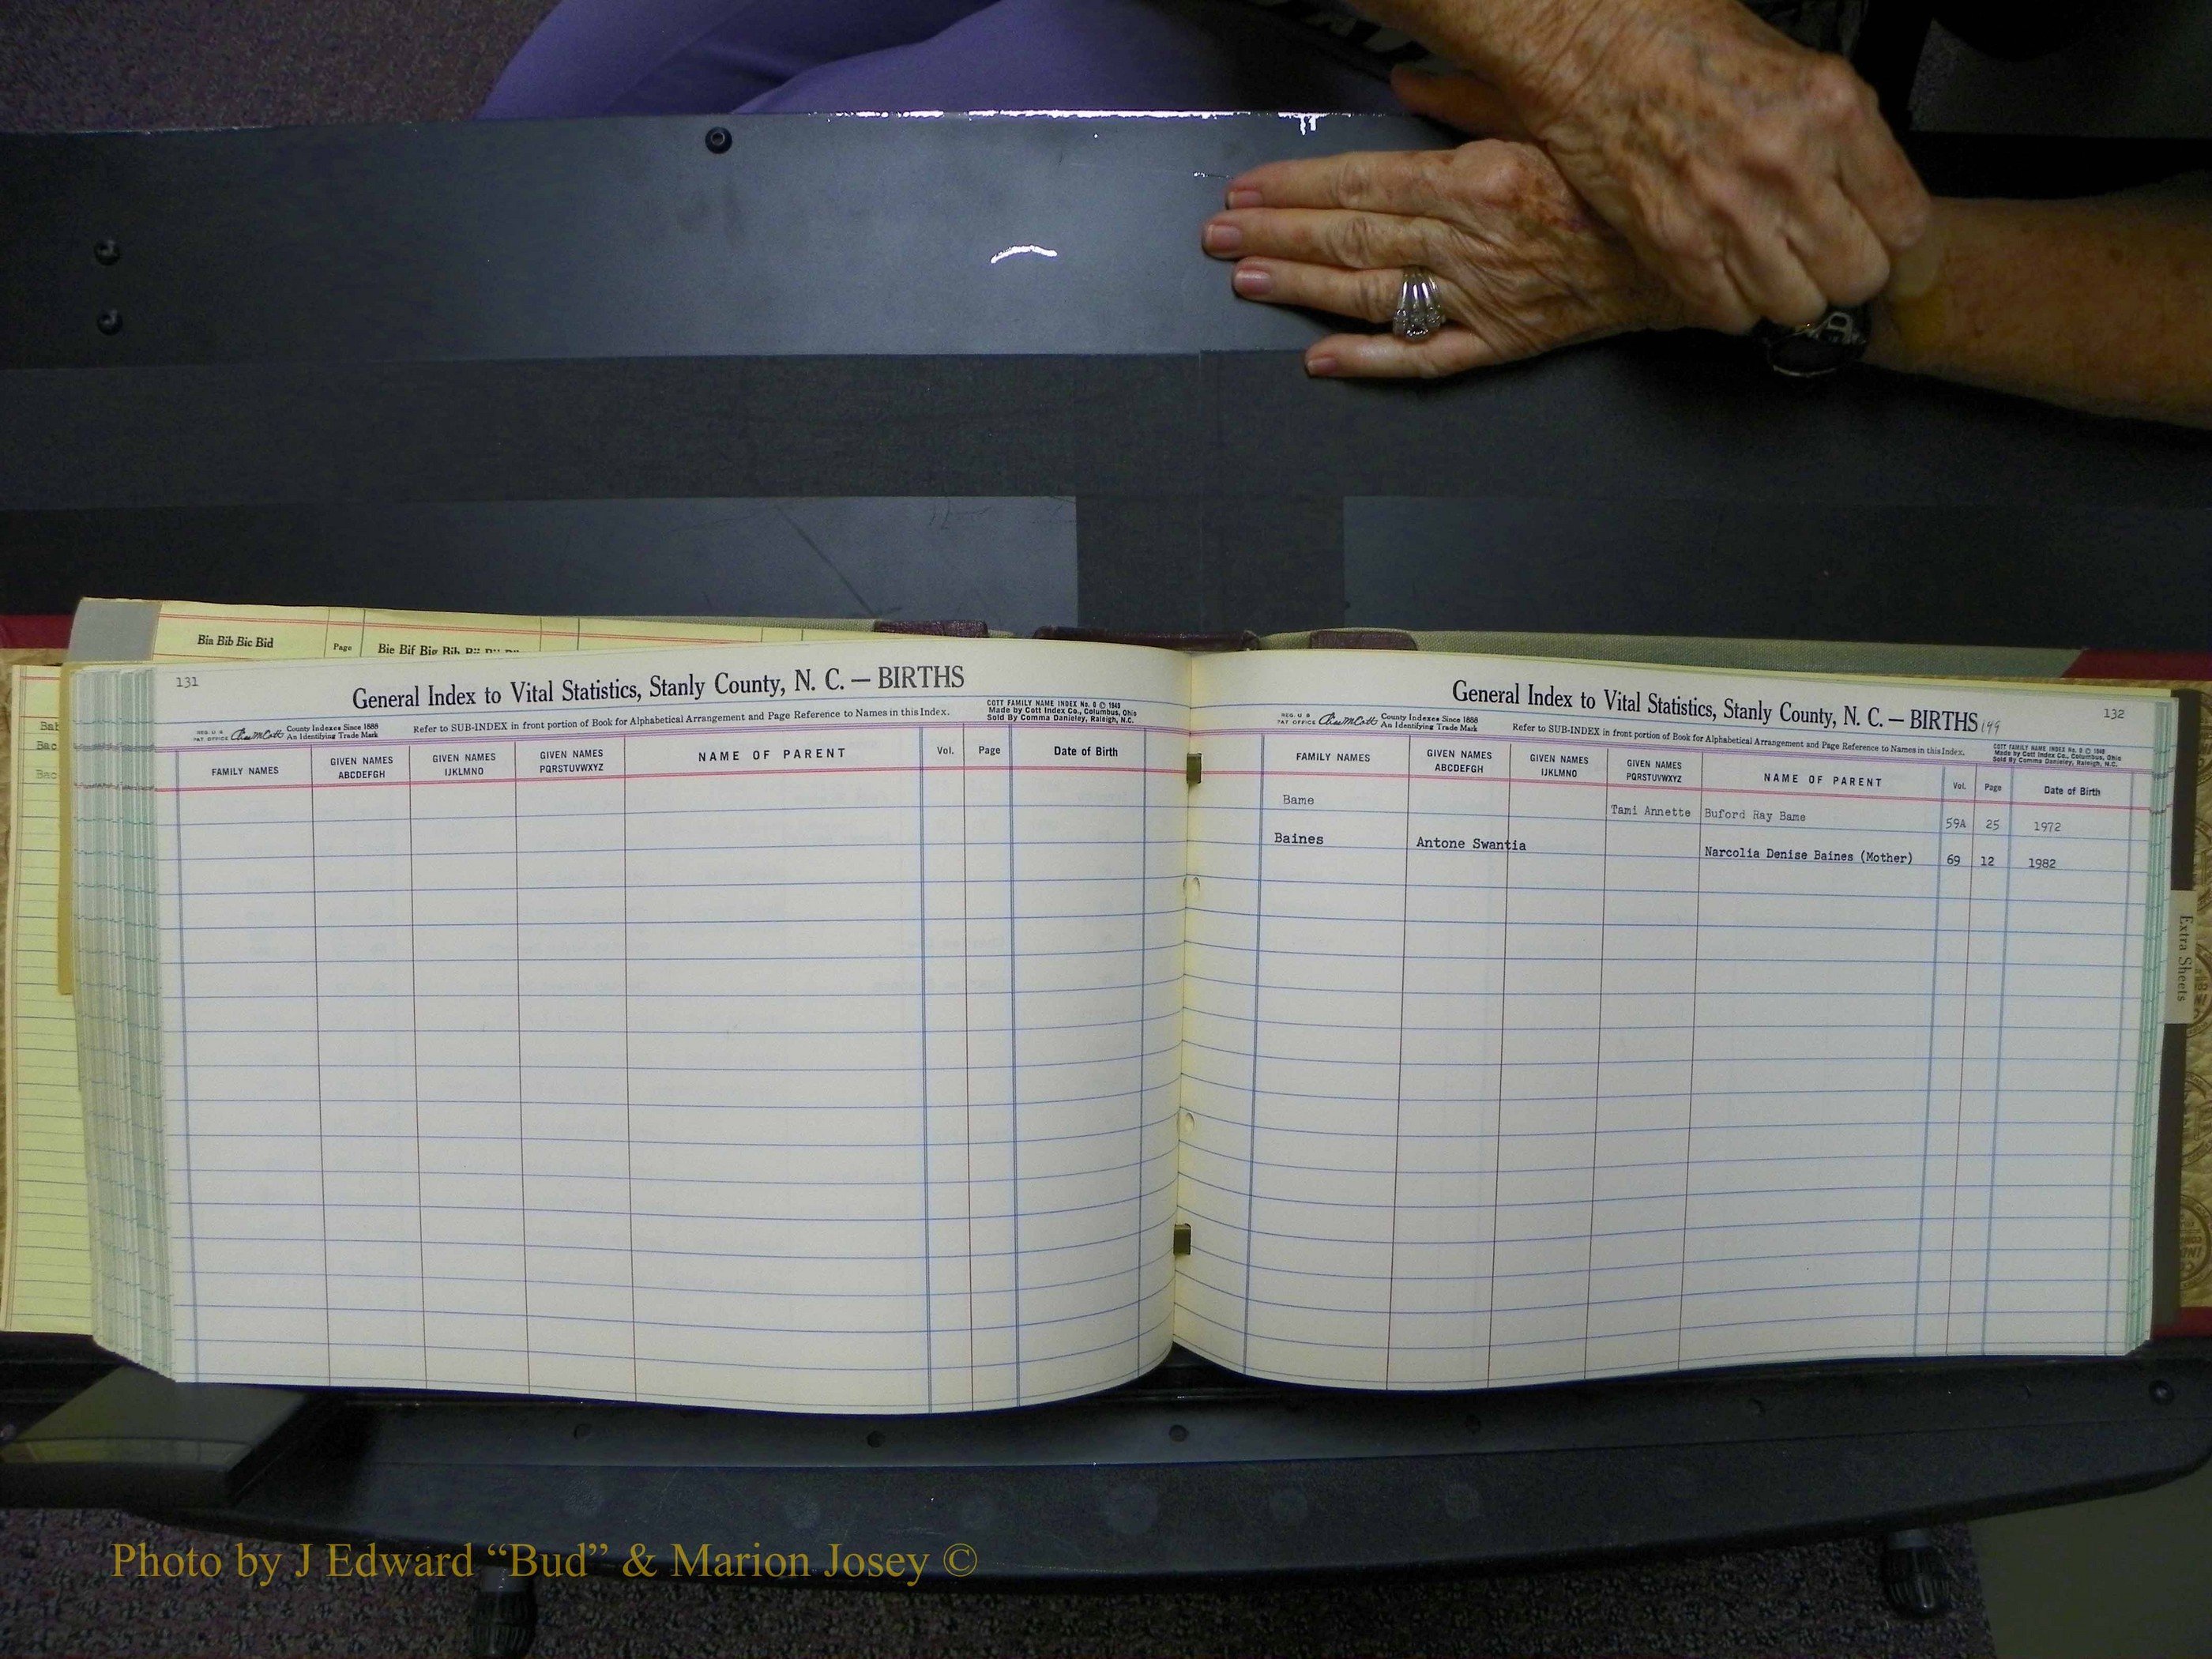 Bia Bib Bic Bid
Page
Bie Bif Big Bih
131
General Index to Vital Statistics, Stanly County, N. C. — BIRTHS
REG. U. S. PAT. OFFICE
County Indexes Since 1888
An Identifying Trade Mark
Refer to SUB-INDEX in front portion of Book for Alphabetical Arrangement and Page Reference to Names in this Index.
COTT FAMILY NAME INDEX No. 8 © 1949
Made by Cott Index Co., Columbus, Ohio
Sold By Comma Danieley, Raleigh, N.C.
FAMILY NAMES
GIVEN NAMES ABCDEFGH
GIVEN NAMES IJKLMNO
GIVEN NAMES PQRSTUVWXYZ
NAME OF PARENT
Vol.
Page
Date of Birth
General Index to Vital Statistics, Stanly County, N. C. — BIRTHS 149
132
REG. U. S. PAT. OFFICE
County Indexes Since 1888
An Identifying Trade Mark
Refer to SUB-INDEX in front portion of Book for Alphabetical Arrangement and Page Reference to Names in this Index.
COTT FAMILY NAME INDEX No. 8 © 1949
Made by Cott Index Co., Columbus, Ohio
Sold By Comma Danieley, Raleigh, N.C.
FAMILY NAMES
GIVEN NAMES ABCDEFGH
GIVEN NAMES IJKLMNO
GIVEN NAMES PQRSTUVWXYZ
NAME OF PARENT
Vol.
Page
Date of Birth
Bame Tami Annette Buford Ray Bame 59A 25 1972
Baines Antone Swantia Narcolia Denise Baines (Mother) 69 12 1982
Extra Sheets
Photo by J Edward “Bud” & Marion Josey ©